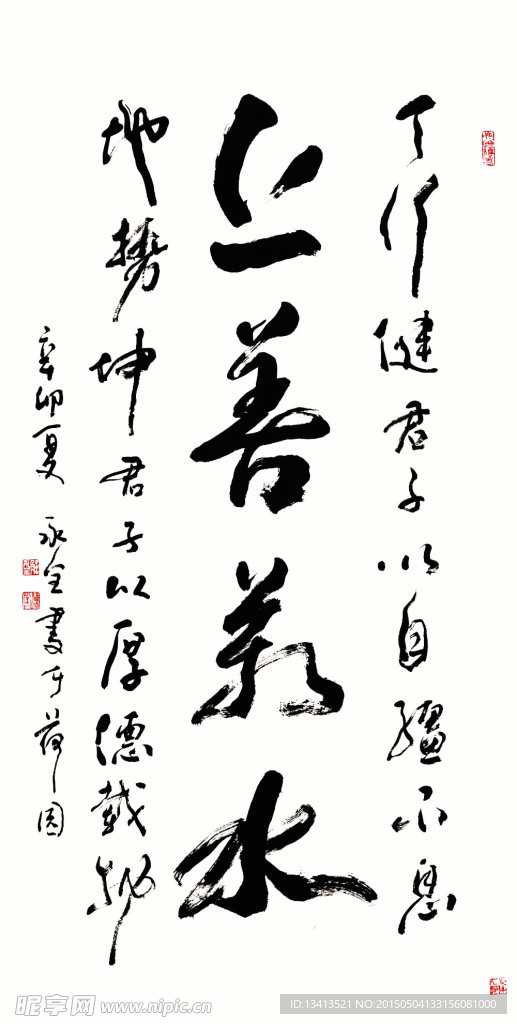 天行健君子以自疆不息
上善若水
地势坤君子以厚德载物
辛卯夏 永全书于荷园
昵享网 www.nipic.cn
ID:13413521 NO:20150504133156081000